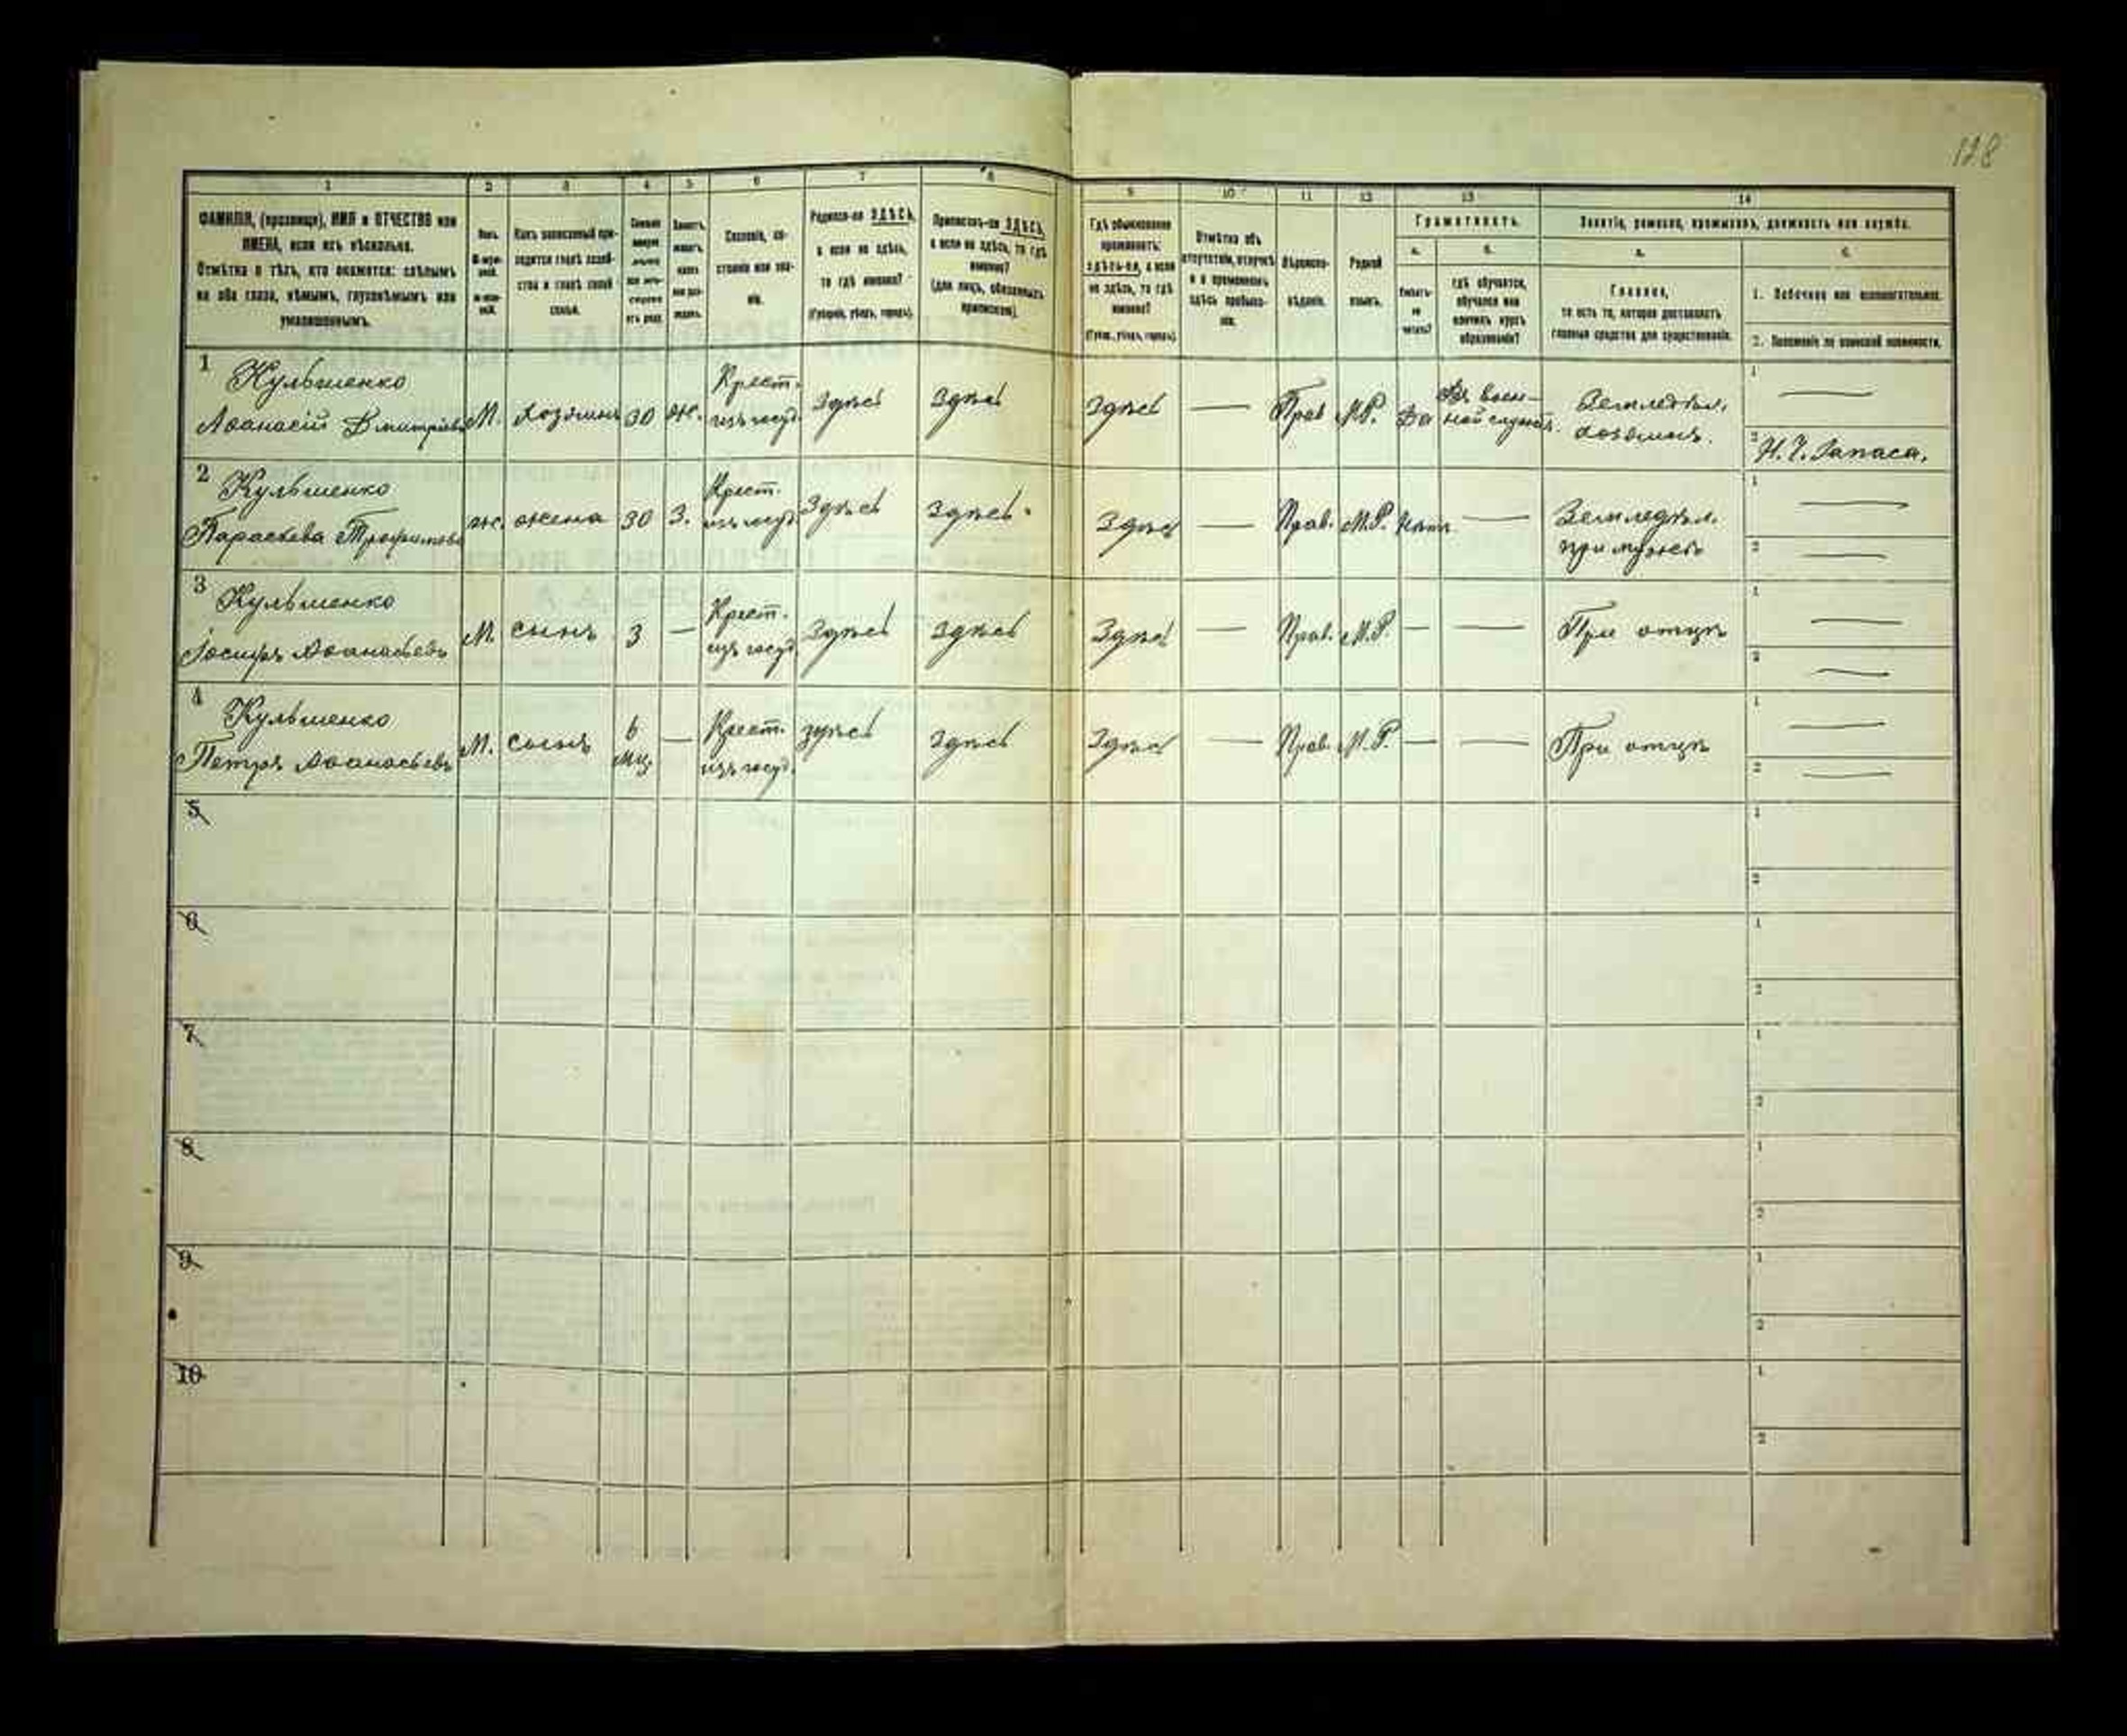 128
1 2 3 4 5 6 7 8 9 10 11 12 13 14
ФАМИЛІЯ, (прозвище), ИМЯ и ОТЧЕСТВО или
ИМЕНА, если ихъ нѣсколько.
Отмѣтка о тѣхъ, кто окажется: слѣпымъ
на оба глаза, нѣмымъ, глухонѣмымъ или
умалишеннымъ.
Полъ.
Какъ записанный при-
ходится главѣ хозяй-
ства и главѣ своей
семьи.
Сословіе, со-
стояніе или зва-
ніе.
Родился-ли ЗДѢСЬ,
а если не здѣсь,
то гдѣ именно?
(Губернія, уѣздъ, городъ).
Приписанъ-ли ЗДѢСЬ,
а если не здѣсь, то гдѣ
именно?
(для лицъ, обязанныхъ
припискою).
Гдѣ обыкновенно
проживаетъ:
здѣсь-ли, а если
не здѣсь, то гдѣ
именно?
(Губ., уѣздъ, городъ).
Отмѣтка объ
отсутствіи, отлучкѣ
и о временномъ
здѣсь пребыва-
ніи.
Вѣроиспо-
вѣданіе.
Родной
языкъ.
Грамотность.
а.
Умѣетъ-
ли
читать?
б.
гдѣ обучается,
обучался или
кончилъ курсъ
образованія?
Занятіе, ремесло, промыселъ, должность или служба.
а.
Главное,
то есть то, которое доставляетъ
главныя средства для существованія.
б.
1. Побочное или вспомогательное.
2. Положеніе по воинской повинности.
1 Кульшенко
Аѳанасій Дмитріевъ М. хозяинъ 30 ж. Крест. изъ госуд. Здѣсь Здѣсь Здѣсь — Прав М.Р. Да Въ воен-
ной службѣ. Земледѣл.
хозяинъ. 1 —
2 Н. Ч. Запаса.
2 Кульшенко
Параскева Трофимова ж. жена 30 З. Крест. изъ госуд. Здѣсь Здѣсь. Здѣсь — Прав. М.Р. Нѣтъ — Земледѣл.
при мужѣ 1 —
2 —
3 Кульшенко
Іосифъ Аѳанасьевъ М. сынъ 3 — Крест. изъ госуд. Здѣсь Здѣсь Здѣсь — Прав. М.Р. — — При отцѣ 1 —
2 —
4 Кульшенко
Петръ Аѳанасьевъ М. сынъ 6 мц. — Крест. изъ госуд. Здѣсь Здѣсь Здѣсь — Прав. М.Р. — — При отцѣ 1 —
2 —
5 1
2
6 1
2
7 1
2
8 1
2
9 1
2
10 1
2